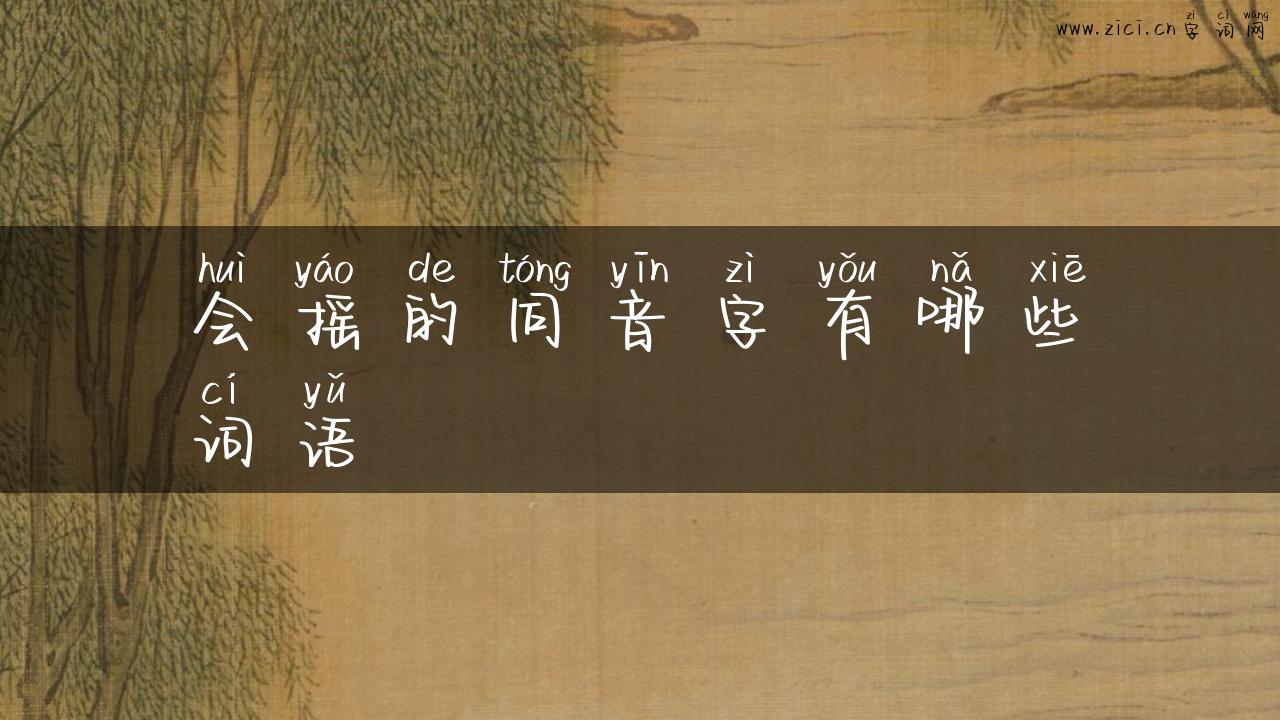 zì cí wǎng
www.zici.cn 字词网
huì yáo de tóng yīn zì yǒu nǎ xiē
会摇的同音字有哪些
cí yǔ
词语